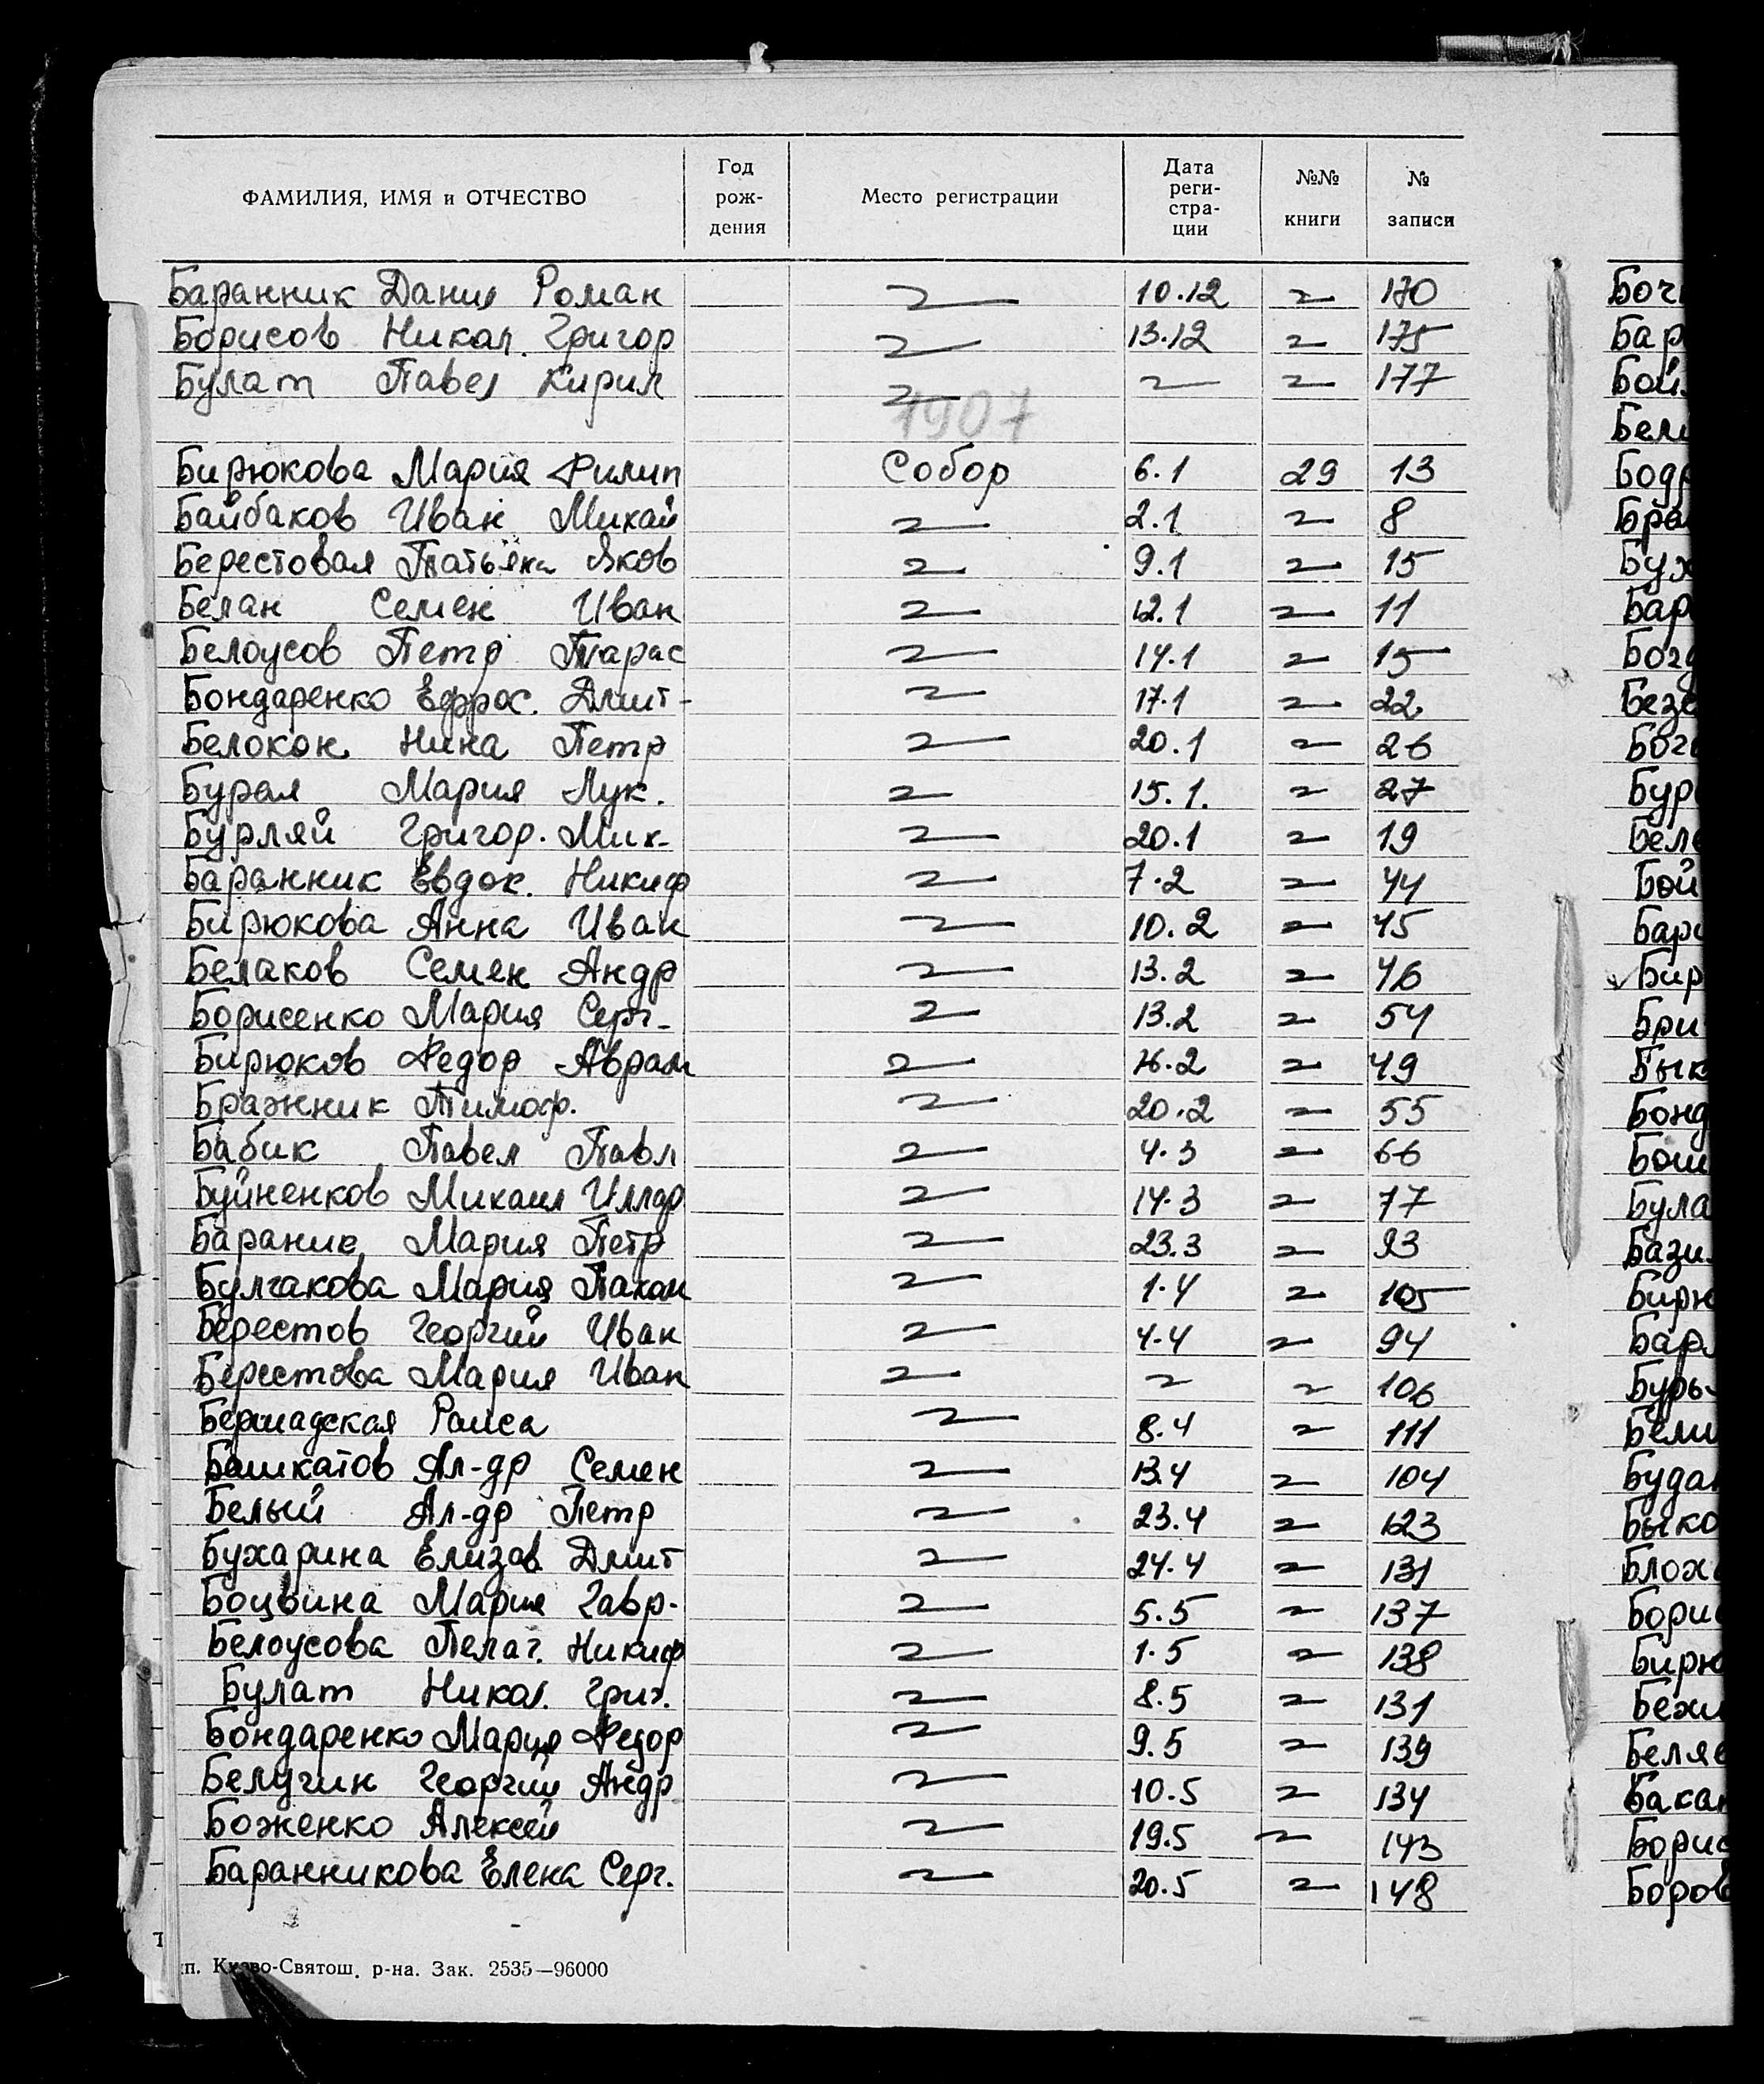 ФАМИЛИЯ, ИМЯ и ОТЧЕСТВО Год рож- дения Место регистрации Дата реги- стра- ции №№ книги № записи
Баранник Данил Роман — 〃 10.12 〃 170
Борисов Никол. Григор 〃 13.12 〃 175
Булат Павел Кирил 〃 〃 〃 177
1907
Бирюкова Мария Филип Собор 6.1 29 13
Байбаков Иван Михай 〃 2.1 〃 8
Берестовая Татьяна Яков 〃 9.1 〃 15
Белан Семен Иван 〃 12.1 〃 11
Белоусов Петр Тарас 〃 14.1 〃 15
Бондаренко Ефрос. Дмит- 〃 17.1 〃 22
Белокон Нина Петр 〃 20.1 〃 26
Бурая Мария Лук. 〃 15.1. 〃 27
Бурляй Григор. Мик- 〃 20.1 〃 19
Баранник Евдок. Никиф 〃 7.2 〃 44
Бирюкова Анна Иван 〃 10.2 〃 45
Белаков Семен Андр 〃 13.2 〃 46
Борисенко Мария Серг- 〃 13.2 〃 54
Бирюков Федор Аврам 〃 16.2 〃 49
Бражник Тимоф. 〃 20.2 〃 55
Бабик Павел Павл 〃 4.3 〃 66
Буйненков Михаил 〃 14.3 〃 77
Бараник Мария Петр 〃 23.3 〃 93
Булгакова Мария Пахом 〃 1.4 〃 105
Берестов Георгий Иван 〃 4.4 〃 94
Берестова Мария Иван 〃 〃 〃 106
Бершадская Раиса 〃 8.4 〃 111
Башкатов Ал-др Семен 〃 13.4 〃 104
Белый Ал-др Петр 〃 23.4 〃 123
Бухарина Елизав Дмит 〃 24.4 〃 131
Боцвина Мария Гавр. 〃 5.5 〃 137
Белоусова Пелаг. Никиф 〃 1.5 〃 138
Булат Никол. Григ. 〃 8.5 〃 131
Бондаренко Мария Федор 〃 9.5 〃 139
Белугин Георгий Андр 〃 10.5 〃 134
Боженко Алексей 〃 19.5 〃 143
Баранникова Елена Серг. 〃 20.5 〃 148
ип. Киево-Святош. р-на. Зак. 2535—96000